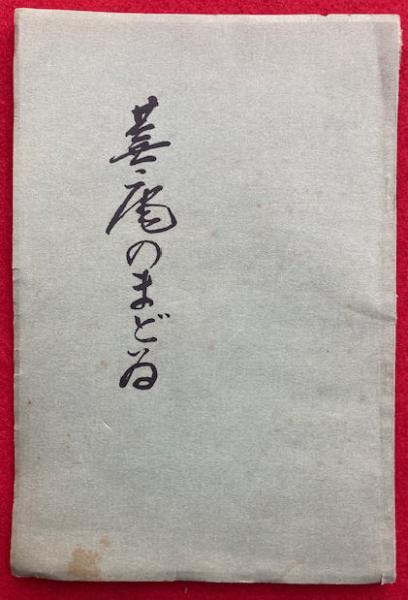 蕪庵のまどゐ